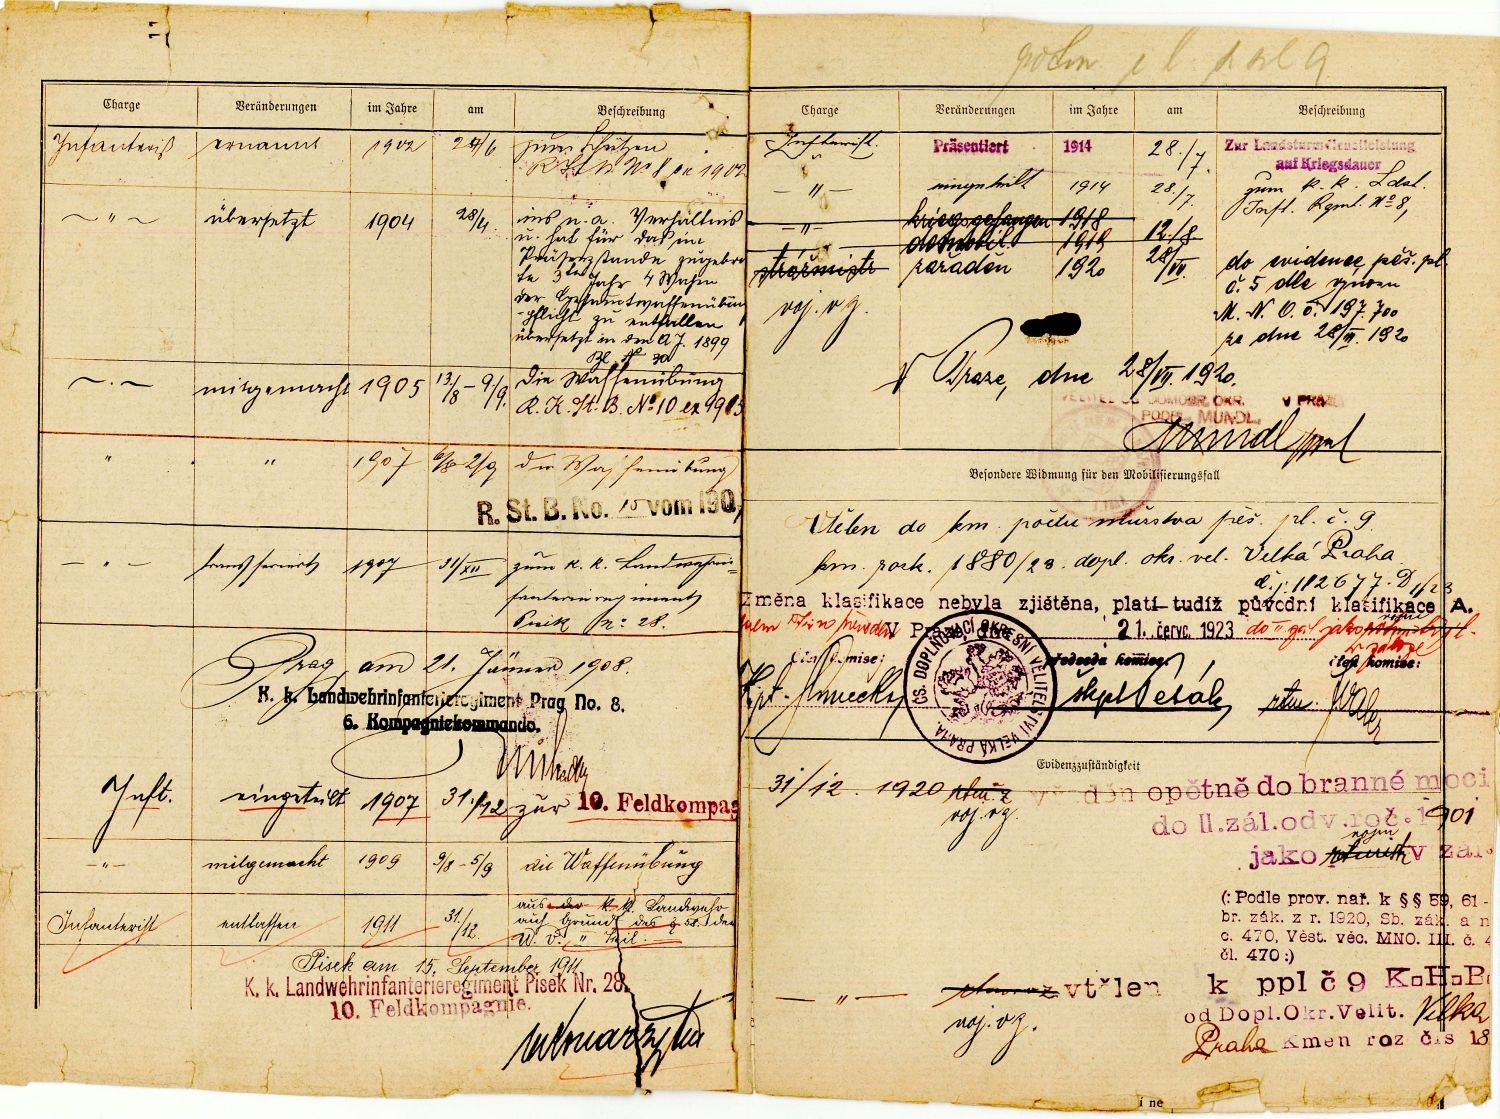 11
Charge Veränderungen im Jahre am Beschreibung
Infanterist ernannt 1902 24/6 zum Schützen
No 8 ex 1902
~ " ~ übersetzt 1904 28/4 ins n. a. Verhältnis
u. hat für das im
Präsenzstande zugebra
te 3te Jahr 4 Wochen
der Gesamtwaffenübun
-pflicht zu entfallen
übersetzt in den A.J. 1899
Bl. No
~ . ~ mitgemacht 1905 13/8 - 9/9. die Waffenübung
R. K. St. B. No 10 ex 1905
" " 1907 6/8 - 2/9 die Waffenübung
R. St. B. No. 15 vom 190
— " — transferiert 1907 31/XII zum k. k. Landwehrin-
fanterieregiment
Pisek No 28.
Prag am 21. Jänner 1908.
K. k. Landwehrinfanterieregiment Prag No. 8.
6. Kompagniekommando.
Inft. eingeteilt 1907 31./12 zur 10. Feldkompag
—"— mitgemacht 1909 9/8 - 5/9 die Waffenübung
Infanterist entlassen 1911 31./12. aus der k. k. Landwehr
auf Grund des § der
W. V. " Teil.
Pisek am 15. September 1911
K. k. Landwehrinfanterieregiment Pisek Nr. 28.
10. Feldkompagnie.
Charge Veränderungen im Jahre am Beschreibung
Infterist. Präsentiert 1914 28./7. Zur Landsturmdienstleistung
auf Kriegsdauer
— " — eingeteilt 1914 28./7. zum k. k. Ldst.
Inft. Rgmt. No 8,
— " — kriegsgefangen 1918
demobil. 1919 12./8
strážmistr zařáděn 1920 28/VII. do evidence pěš. pl.
voj. v z. č. 5 dle výnosu
M. N. O. č. 197.700
ze dne 28/VII. 1920
V Praze, dne 28/VII. 1920.
V PRAZE
PODPL. MUNDL.
Mundl
Besondere Widmung für den Mobilisierungsfall
Vtělen do km. počtu mužstva pěš. pl. č. 9
km. rock. 1880/23 dopl. okr. vel. Velká Praha
č. j. 112677-D 1/23
Změna klasifikace nebyla zjištěna, platí tudíž původní klasifikace A.
V Praze, dne 21. červc. 1923
Člen komise: Předseda komise: člen komise:
ČS. DOPLŇOVACÍ OKRESNÍ VELITELSTVÍ VELKÁ PRAHA
Evidenzzuständigkeit
31/12. 1920 opětně do branné moci
voj. v z. do II. zál. odv. roč. 1901
jako vojín v zál.
(: Podle prov. nař. k §§ 59, 61-
br. zák. z r. 1920, Sb. zák. a n
c. 470, Věst. věc. MNO. III. č. 4
čl. 470 :)
— " — vtělen k ppl č 9 K.H.B.
voj. v z. od Dopl. Okr. Velit. Velká
Praha Kmen roz čís 18